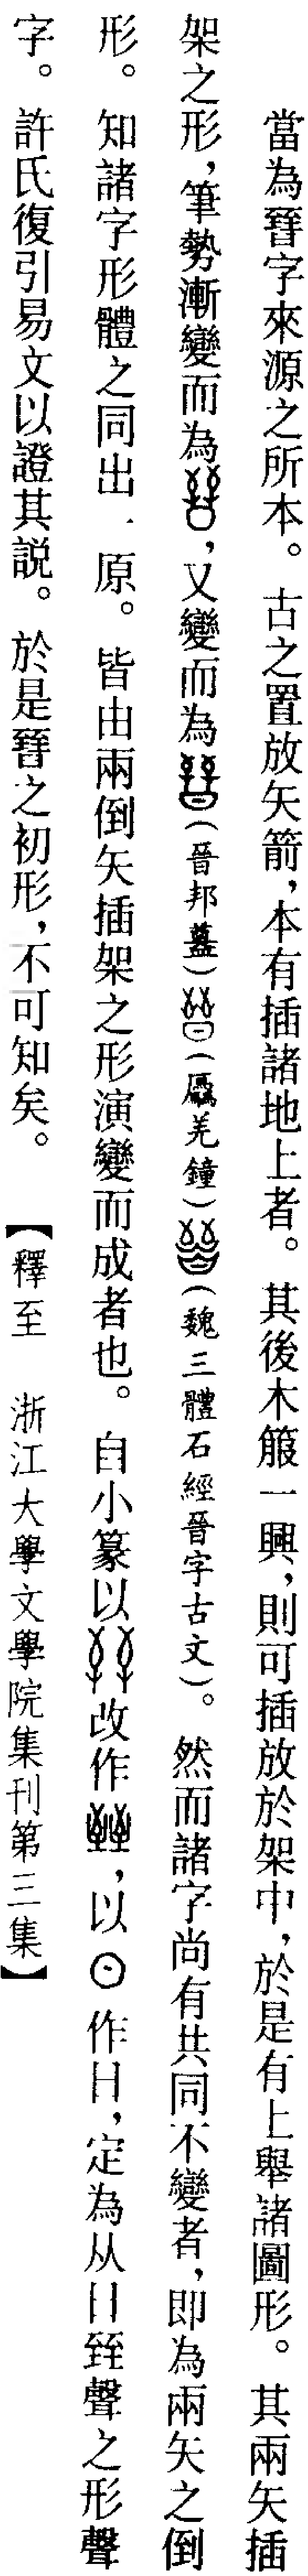 當為䇂字來源之所本。古之置放矢箭，本有插諸地上者。其後木箙一興，則可插放於架中，於是有上舉諸圖形。其兩矢插
架之形，筆勢漸變而為，又變而為（晉邦𥂴）（𠫑羌鐘）（魏三體石經晉字古文）。然而諸字尚有共同不變者，即為兩矢之倒
形。知諸字形體之同出一原。皆由兩倒矢插架之形演變而成者也。自小篆以改作，以⊙作日，定為从日臸聲之形聲
字。許氏復引易文以證其説。於是㬜之初形，不可知矣。【（釋至　浙江大學文學院集刊第三集】